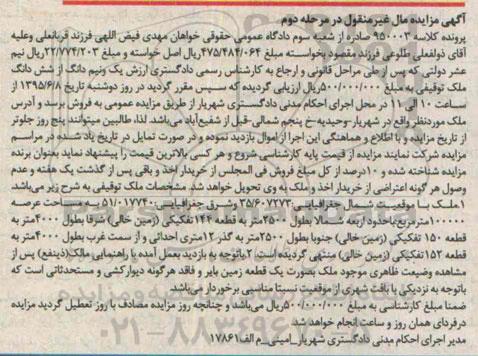 آگهی مزایده مال غیرمنقول در مرحله دوم
پرونده کلاسه ۹۵۰۰۰۳ صادره از شعبه سوم دادگاه عمومی حقوقی خواهان مهدی فیض اللهی فرزند قربانعلی وعلیه
آقای ذولفعلی طلوعی فرزند مقصود بخواسته مبلغ ۴۷۵/۴۸۴/۰۶۴ریال اصل خواسته و مبلغ ۲۲/۷۷۴/۲۰۳ریال نیم
عشر دولتی که پس از طی مراحل قانونی و ارجاع به کارشناس رسمی دادگستری ارزش یک ونیم دانگ از شش دانگ
ملک توقیفی به مبلغ ۵۰۰/۰۰۰/۰۰۰ریال ارزیابی گردیده که سپس مقرر گردید در روز دوشنبه تاریخ ۱۳۹۵/۶/۸ از
ساعت ۱۰ الی ۱۱ در محل اجرای احکام مدنی دادگستری شهریار از طریق مزایده عمومی به فروش برسد و آدرس
ملک موردنظر واقع در شهریار-وحیدیه-خ پنجم شمالی-قبل از شفیع‌آباد می‌باشد. لذا، طالبین میتوانند پنج روز جلوتر
از تاریخ مزایده و با اطلاع و هماهنگی این اجرا از اموال بازدید نموده و در صورت تمایل در تاریخ یاد شده در مراسم
مزایده شرکت نمایند مزایده از قیمت پایه کارشناسی شروع و هر کسی بالاترین قیمت را پیشنهاد نماید بعنوان برنده
مزایده شناخته شده و ۱۰درصد از کل مبلغ فروش فی المجلس از خریدار اخذ و باقی پس از گذشت یک هفته و عدم
وصول هر گونه اعتراضی از خریدار اخذ و ملک به وی تحویل خواهد شد. مشخصات ملک توقیفی به شرح زیر می‌باشد:
۱ملک با موقعیت شمال جغرافیایی:۳۵/۶۰۷۲۷۳ وشرق جغرافیایی:۵۱/۰۱۷۷۴۰ به مساحت عرصه
۱۰۰۰۰مترمربع‌باحدود‌اربعه شمالا بطول ۲۵۰۰متر به قطعه ۱۴۴ تفکیکی (زمین خالی) شرقا بطول ۴۰۰۰متر به
قطعه ۱۵۰ تفکیکی (زمین خالی) جنوبا بطول ۲۵۰۰متر به گذر ۱۲متری احداثی و از سمت غرب بطول ۴۰۰۰متر به
قطعه ۱۵۲ تفکیکی (زمین خالی) منتهی گردیده است. ۲باتوجه به بازدید بعمل آمده با راهنمایی مالک(ذینفع) پس از
مشاهده وضیعت ظاهری موجود ملک بصورت یک قطعه زمین بایر و فاقد هرگونه دیوارکشی و مستحدثاتی است که
باتوجه به نزدیکی با بافت شهری از موقعیت نسبتا مناسبی برخوردار می‌باشد.
ضمنا مبلغ کارشناسی به مبلغ ۵۰۰/۰۰۰/۰۰۰ریال می‌باشد و چنانچه روز مزایده مصادف با روز تعطیل گردید مزایده
درفردای همان روز و ساعت انجام خواهد شد.
مدیر اجرای احکام مدنی دادگستری شهریار_امینی_م الف ۱۷۸۶۱